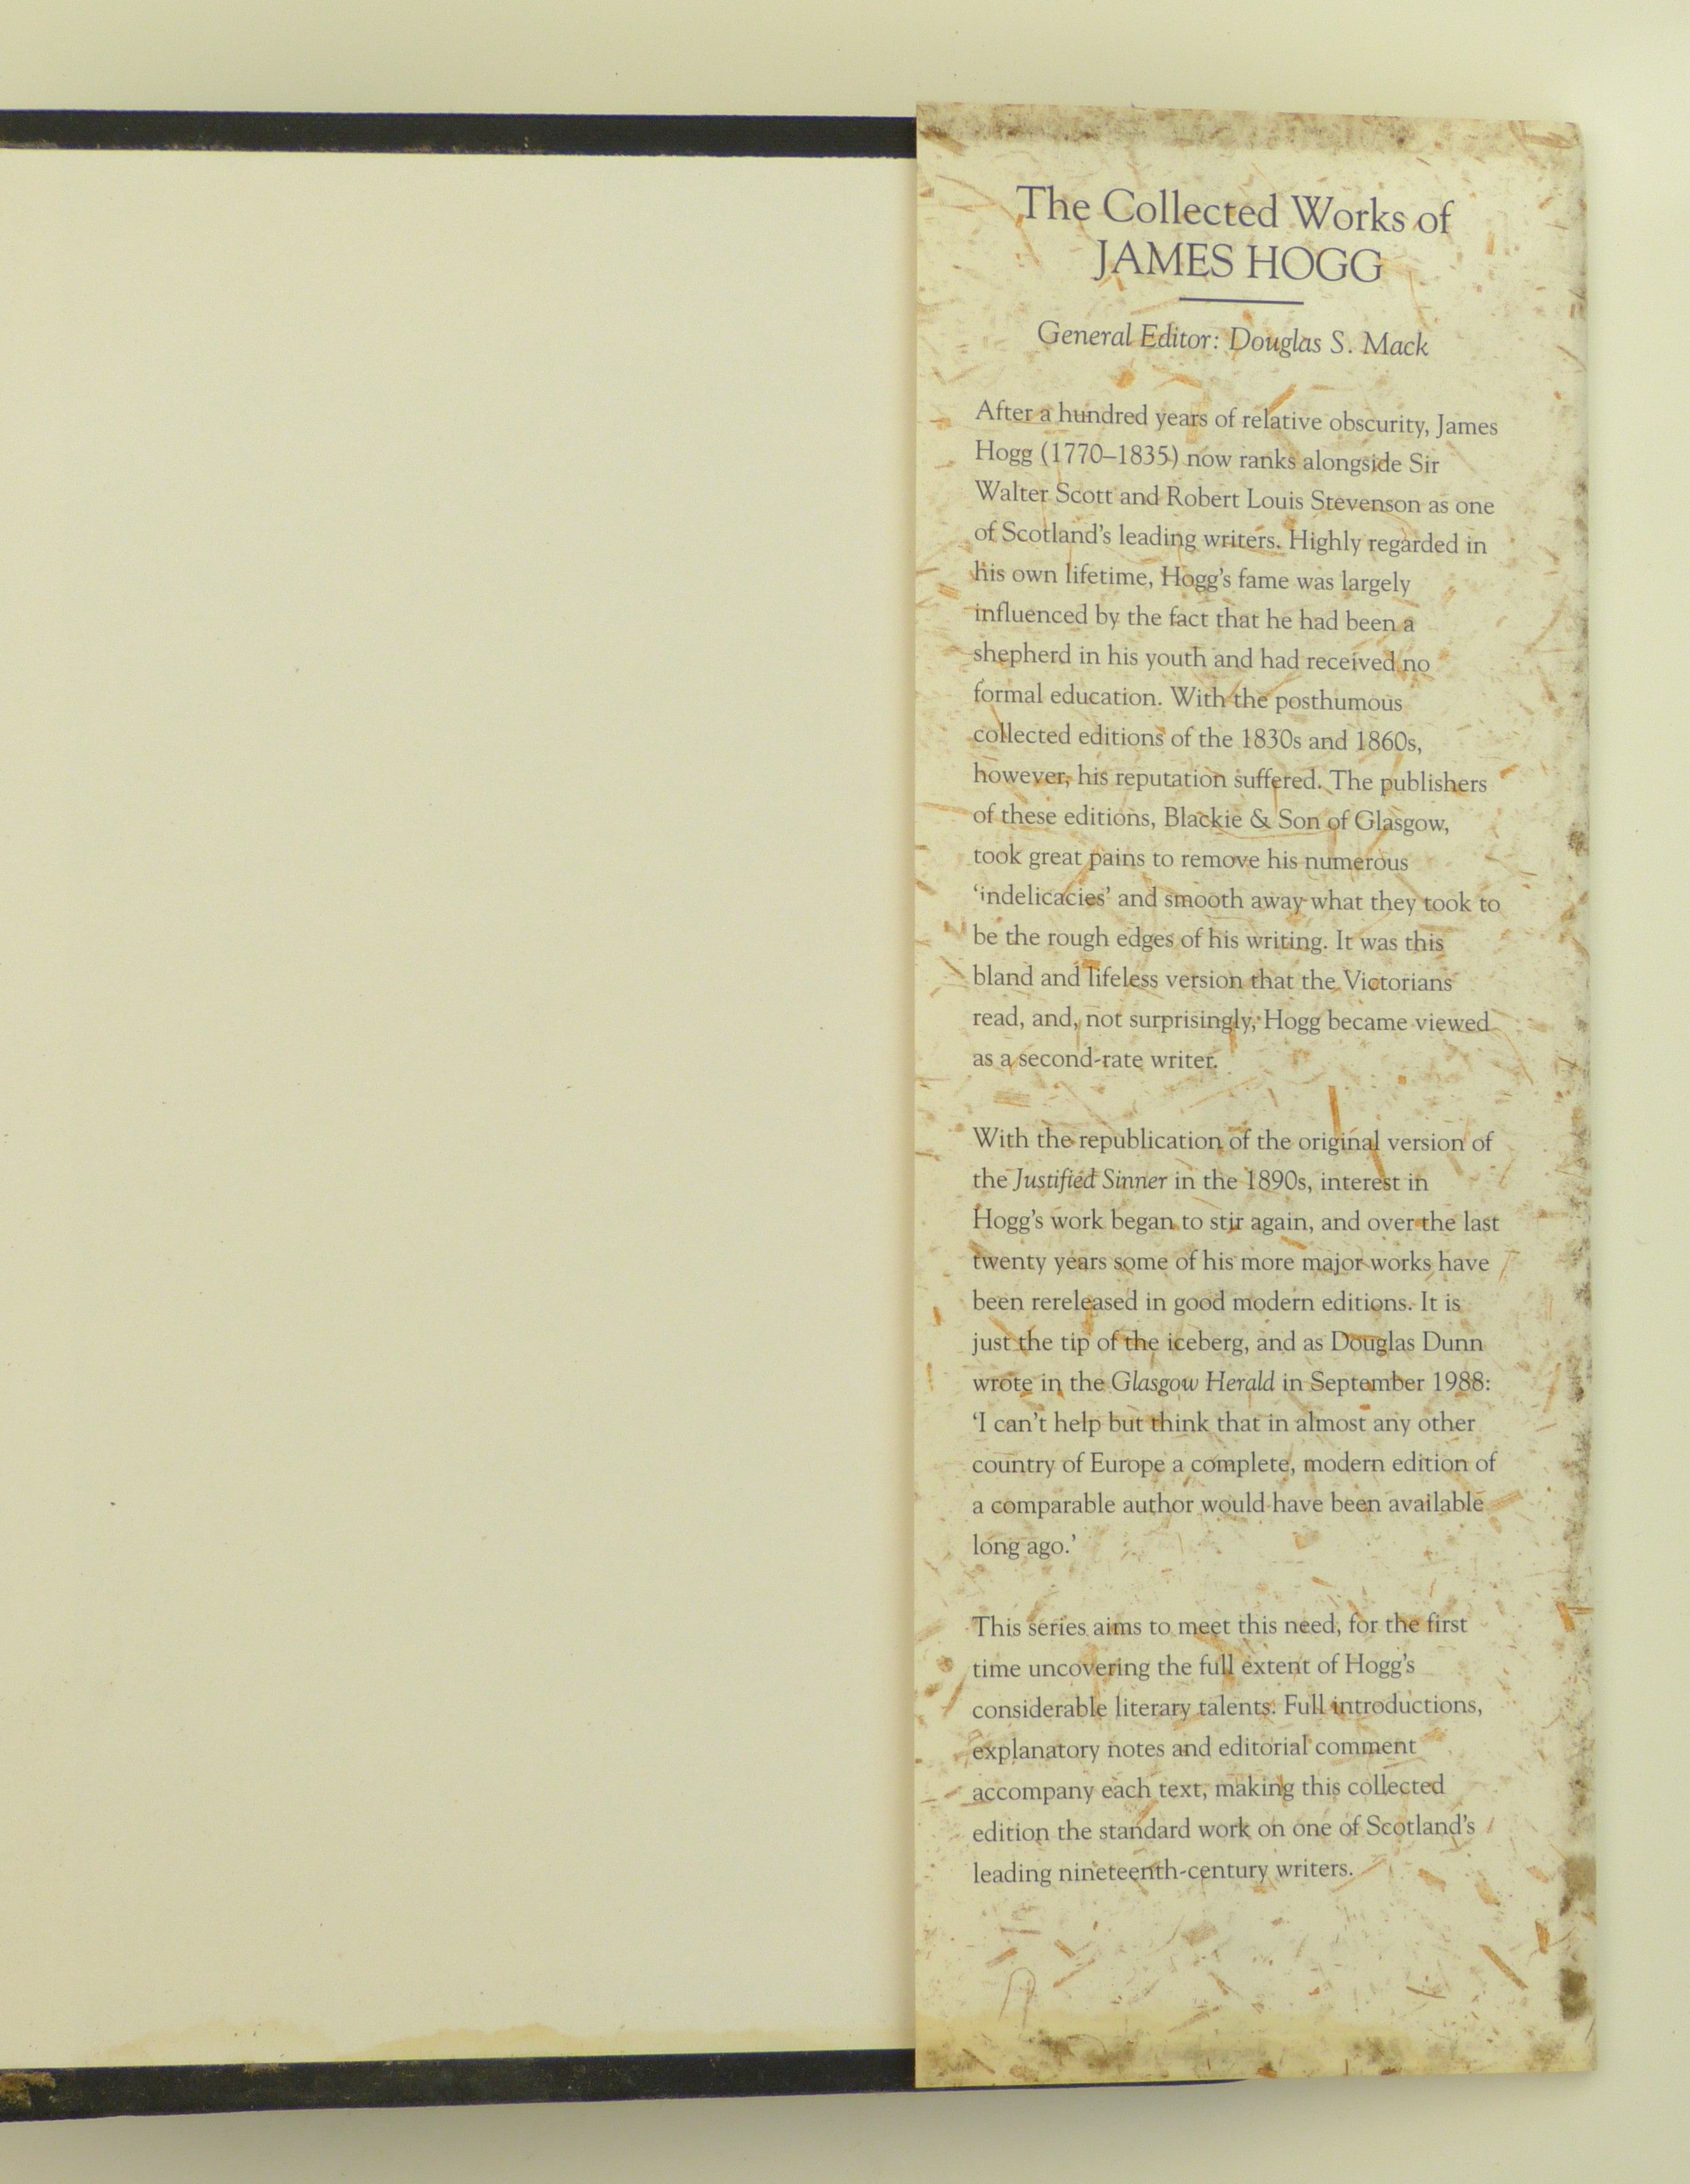 The Collected Works of
JAMES HOGG
General Editor: Douglas S. Mack
After a hundred years of relative obscurity, James
Hogg (1770–1835) now ranks alongside Sir
Walter Scott and Robert Louis Stevenson as one
of Scotland's leading writers. Highly regarded in
his own lifetime, Hogg's fame was largely
influenced by the fact that he had been a
shepherd in his youth and had received no
formal education. With the posthumous
collected editions of the 1830s and 1860s,
however, his reputation suffered. The publishers
of these editions, Blackie & Son of Glasgow,
took great pains to remove his numerous
‘indelicacies’ and smooth away what they took to
be the rough edges of his writing. It was this
bland and lifeless version that the Victorians
read, and, not surprisingly, Hogg became viewed
as a second-rate writer.
With the republication of the original version of
the Justified Sinner in the 1890s, interest in
Hogg's work began to stir again, and over the last
twenty years some of his more major works have
been rereleased in good modern editions. It is
just the tip of the iceberg, and as Douglas Dunn
wrote in the Glasgow Herald in September 1988:
‘I can't help but think that in almost any other
country of Europe a complete, modern edition of
a comparable author would have been available
long ago.’
This series aims to meet this need, for the first
time uncovering the full extent of Hogg's
considerable literary talents. Full introductions,
explanatory notes and editorial comment
accompany each text, making this collected
edition the standard work on one of Scotland's
leading nineteenth-century writers.